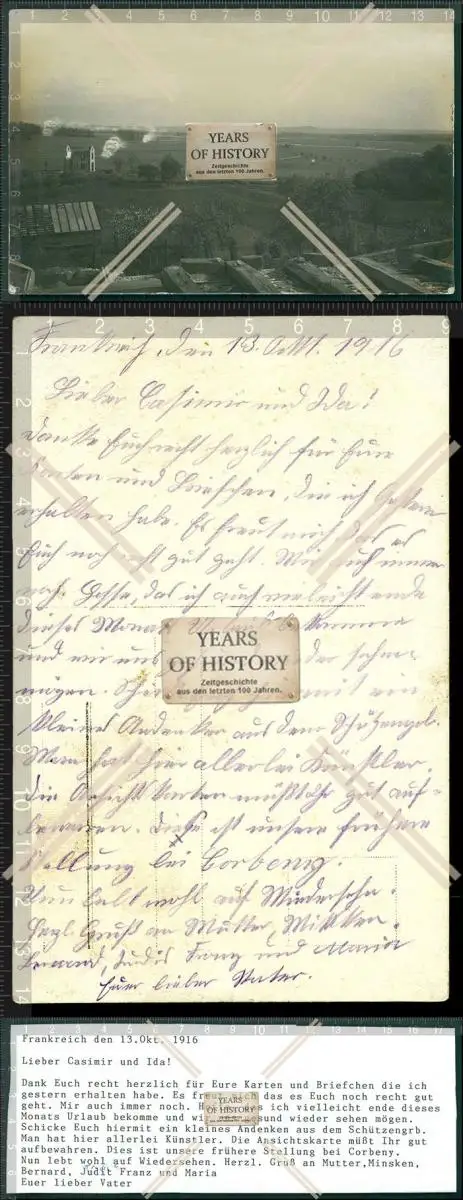 YEARS
OF HISTORY
Zeitgeschichte
aus den letzten 100 Jahren.
Frankreich, den 13. Okt. 1916
Lieber Casimir und Ida!
Danke Euch recht herzlich für Eure
Karten und Briefchen, die ich gestern
erhalten habe. Es freut mich das es
Euch noch recht gut geht. Mir auch immer
noch. Hoffe, das ich auch vielleicht ende
dieses Monats Urlaub bekomme
und wir uns wieder sehen
mögen. Schicke Euch hiermit ein
kleines Andenken aus dem Schützengrb.
Man hat hier allerlei Künstler.
Die Ansichtskarten müßt Ihr gut auf-
bewaren. Dies ist unsere frühere
Stellung bei Corbeny.
Nun lebt wohl auf Wiedersehn.
Herzl. Gruß an Mutter,
Bernard, Judit Franz und Maria
Euer lieber Vater.
YEARS
OF HISTORY
Zeitgeschichte
aus den letzten 100 Jahren.
Frankreich den 13.Okt. 1916
Lieber Casimir und Ida!
Dank Euch recht herzlich für Eure Karten und Briefchen die ich
gestern erhalten habe. Es das es Euch noch recht gut
geht. Mir auch immer noch. ich vielleicht ende dieses
Monats Urlaub bekomme und wieder sehen mögen.
Schicke Euch hiermit ein kleines Andenken aus dem Schützengrb.
Man hat hier allerlei Künstler. Die Ansichtskarte müßt Ihr gut
aufbewahren. Dies ist unsere frühere Stellung bei Corbeny.
Nun lebt wohl auf Wiedersehen. Herzl. Gruß an Mutter,Minsken,
Bernard, Judit Franz und Maria
Euer lieber Vater
YEARS
OF HISTORY